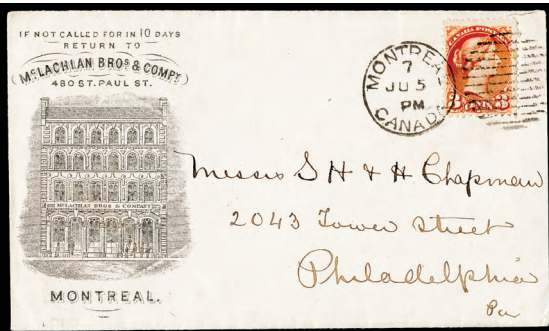 IF NOT CALLED FOR IN 10 DAYS
RETURN TO
McLACHLAN BROS & COMPY
480 ST. PAUL ST.
McLACHLAN BROS & COMPY
MONTREAL.
MONTREAL
7
JU 5
PM
CANADA
CANADA POSTAGE
3 CENTS 3
Messrs S H & H Chapman
2043 Tower Street
Philadelphia
Pa